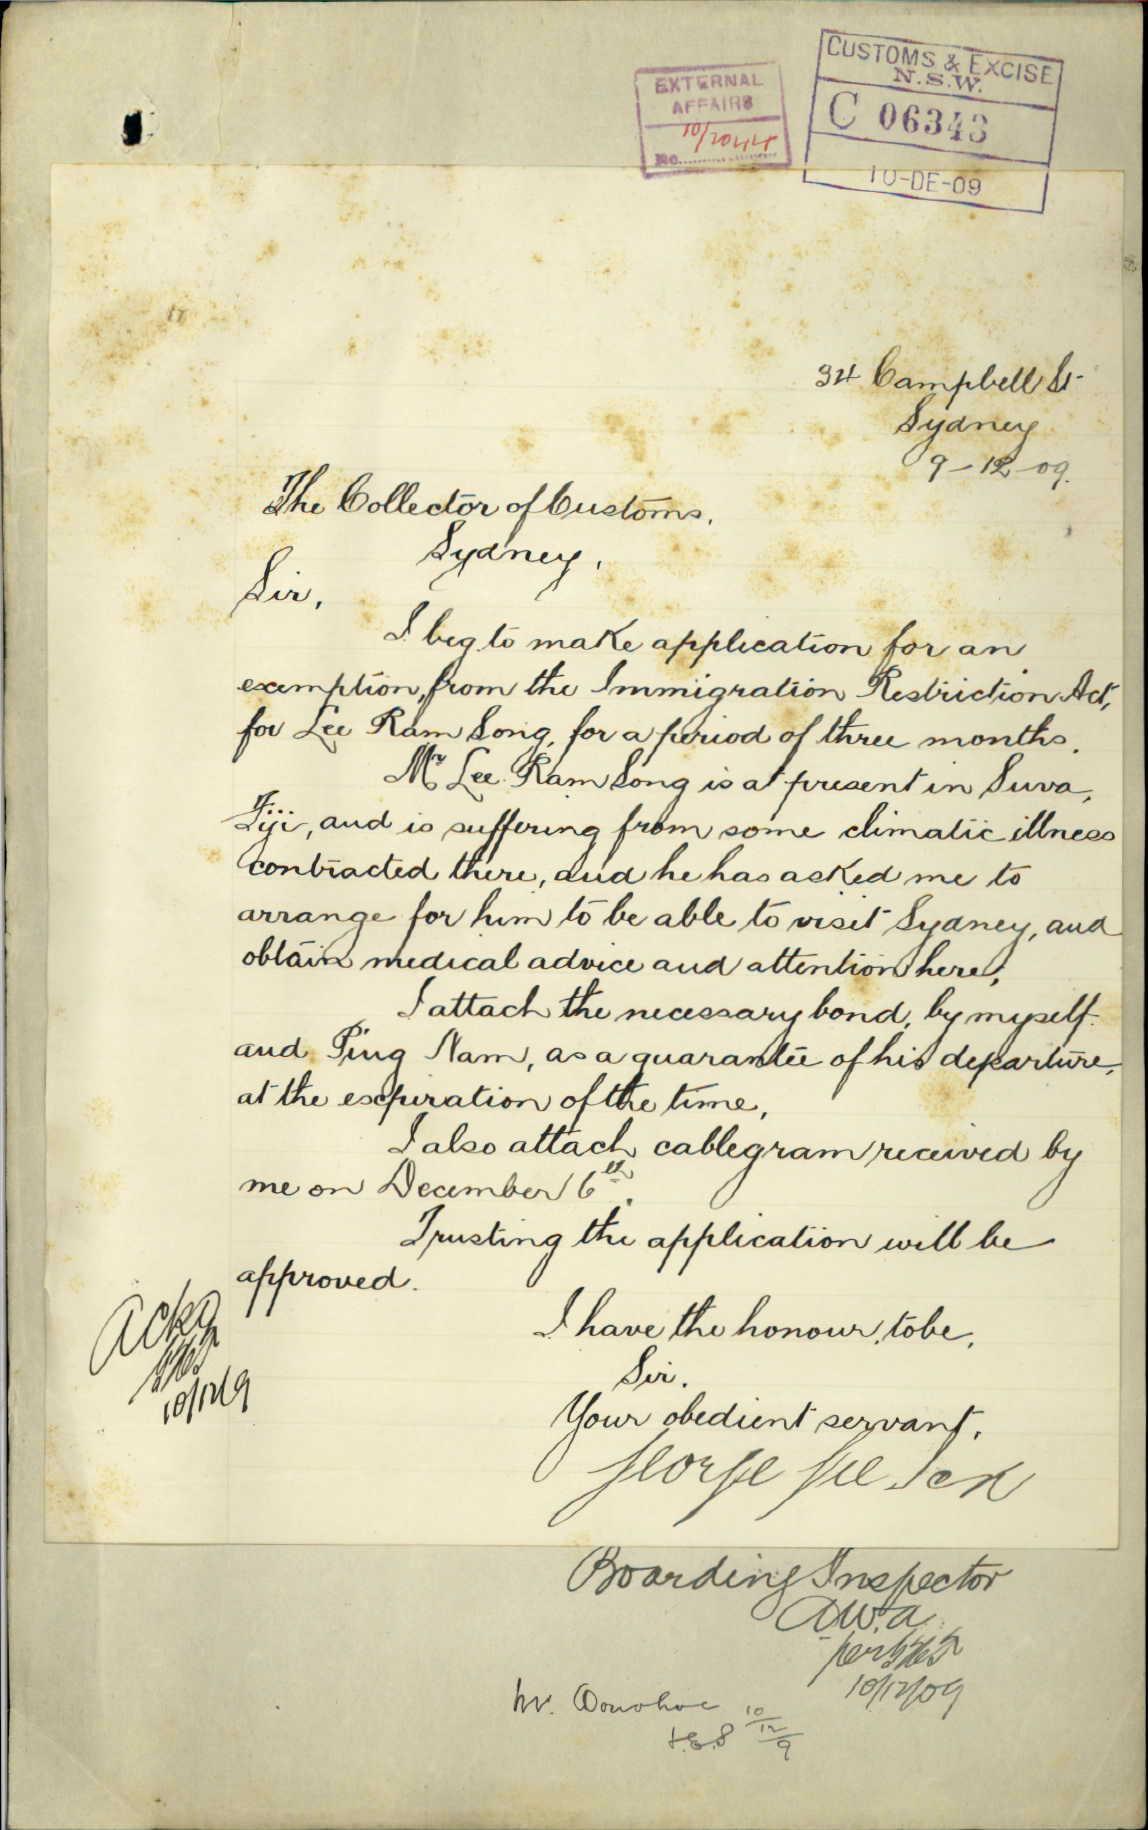 EXTERNAL
AFFAIRS
No.
CUSTOMS & EXCISE
N.S.W.
C 06343
10-DE-09
34 Campbell St
Sydney
9-12-09.
The Collector of Customs.
Sydney,
Sir,
I beg to make application for an
exemption, from the Immigration Restriction Act,
for Lee Ram Song, for a period of three months.
Mr Lee Ram Song is at present in Suva,
Fiji, and is suffering from some climatic illness
contracted there, and he has asked me to
arrange for him to be able to visit Sydney, and
obtain medical advice and attention here,
I attach the necessary bond, by myself
and Ping Nam, as a guarantee of his departure,
at the expiration of the time,
I also attach cablegram received by
me on December 6th.
Trusting the application will be
approved.
I have the honour, to be,
Sir.
Your obedient servant,
George Gee Ick
Ackd
10/12/9
Boarding Inspector
A.W.A.
10/12/09
Mr. Donohoe
10/12/9